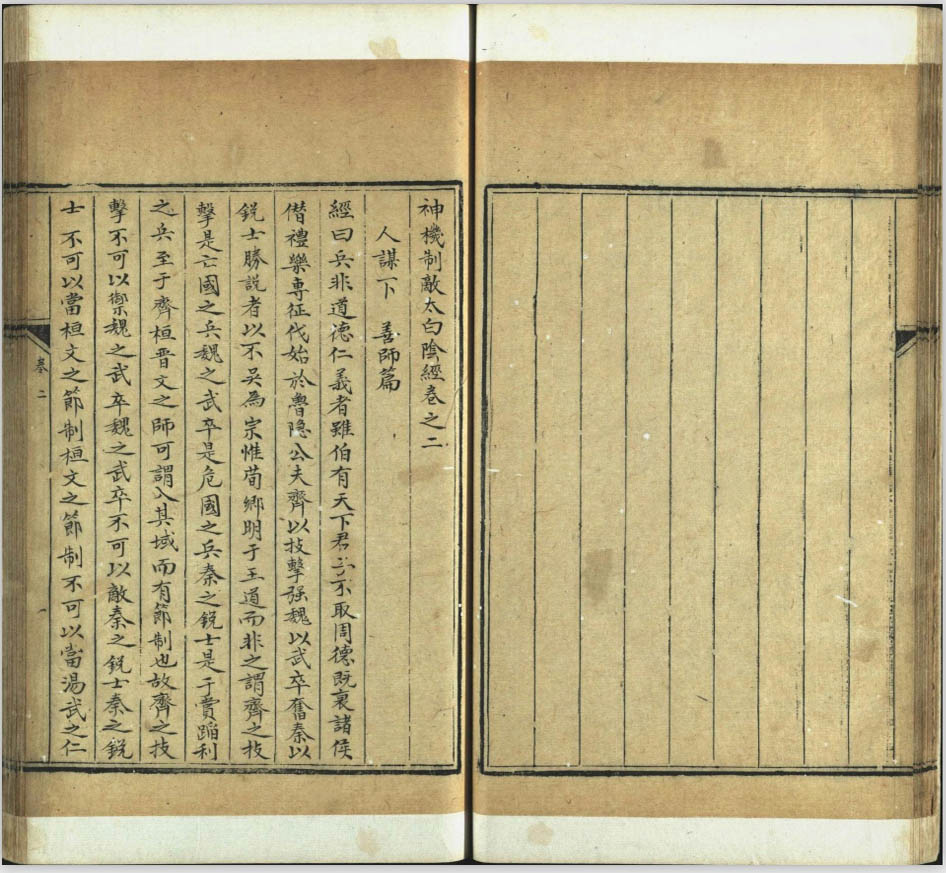 神機制敵太白陰經卷之二
人謀下 善師篇
經曰兵非道德仁義者雖伯有天下君子不取周德既衰諸侯
僭禮樂專征伐始於魯隐公夫齊以技擊强魏以武卒奮秦以
銳士勝説者以不吳為宗惟荀卿明于王道而非之謂齊之技
擊是亡國之兵魏之武卒是危國之兵秦之銳士是于賣蹈利
之兵至于齊桓晋文之師可謂入其域而有節制也故齊之技
擊不可以禦魏之武卒魏之武卒不可以敵秦之銳士秦之銳
士不可以當桓文之節制桓文之節制不可以當湯武之仁
卷二
一